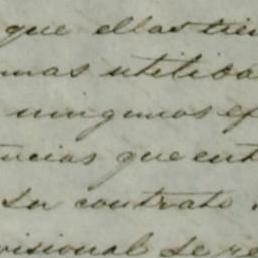 que ellas tien
mas utilida
ningunos ef
tencias que ent
su contrato.
visional se re